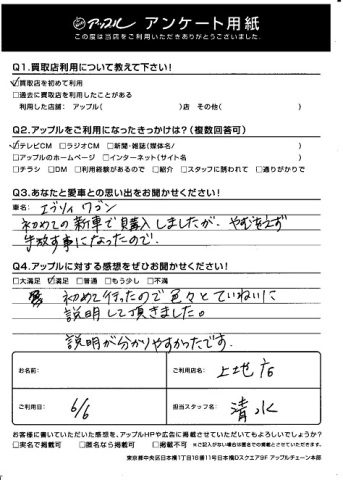 アップル アンケート用紙
この度は当店をご利用いただきありがとうございました。
Q1.買取店利用について教えて下さい!
☑買取店を初めて利用
□過去に買取店を利用したことがある
利用した店舗: アップル( )店 その他( )
Q2.アップルをご利用になったきっかけは?(複数回答可)
☑テレビCM □ラジオCM □新聞・雑誌(媒体名/ )
□アップルのホームページ □インターネット(サイト名 )
□チラシ □DM □利用経験があるので □紹介 □スタッフに誘われて □通りがかりで
Q3.あなたと愛車との思い出をお聞かせください!
車名: エブリィワゴン
初めての新車で購入しましたが、やむをえず
手放す事になったので。
Q4.アップルに対する感想をぜひお聞かせください!
□大満足 ☑満足 □普通 □もう少し □不満
初めて行ったので色々とていねいに
説明して頂きました。
説明が分かりやすかったです。
お名前:
ご利用店名: 上地店
ご利用日: 6/6
担当スタッフ名: 清水
お客様に書いていただいた感想を、アップルHPや広告に掲載させていただいてもよろしいでしょうか?
□実名で掲載可 □匿名なら掲載可 □掲載不可 ※ご記入がない場合は匿名での掲載とさせていただきます。
東京都中央区日本橋1丁目16番11号日本橋Dスクエア9F アップルチェーン本部